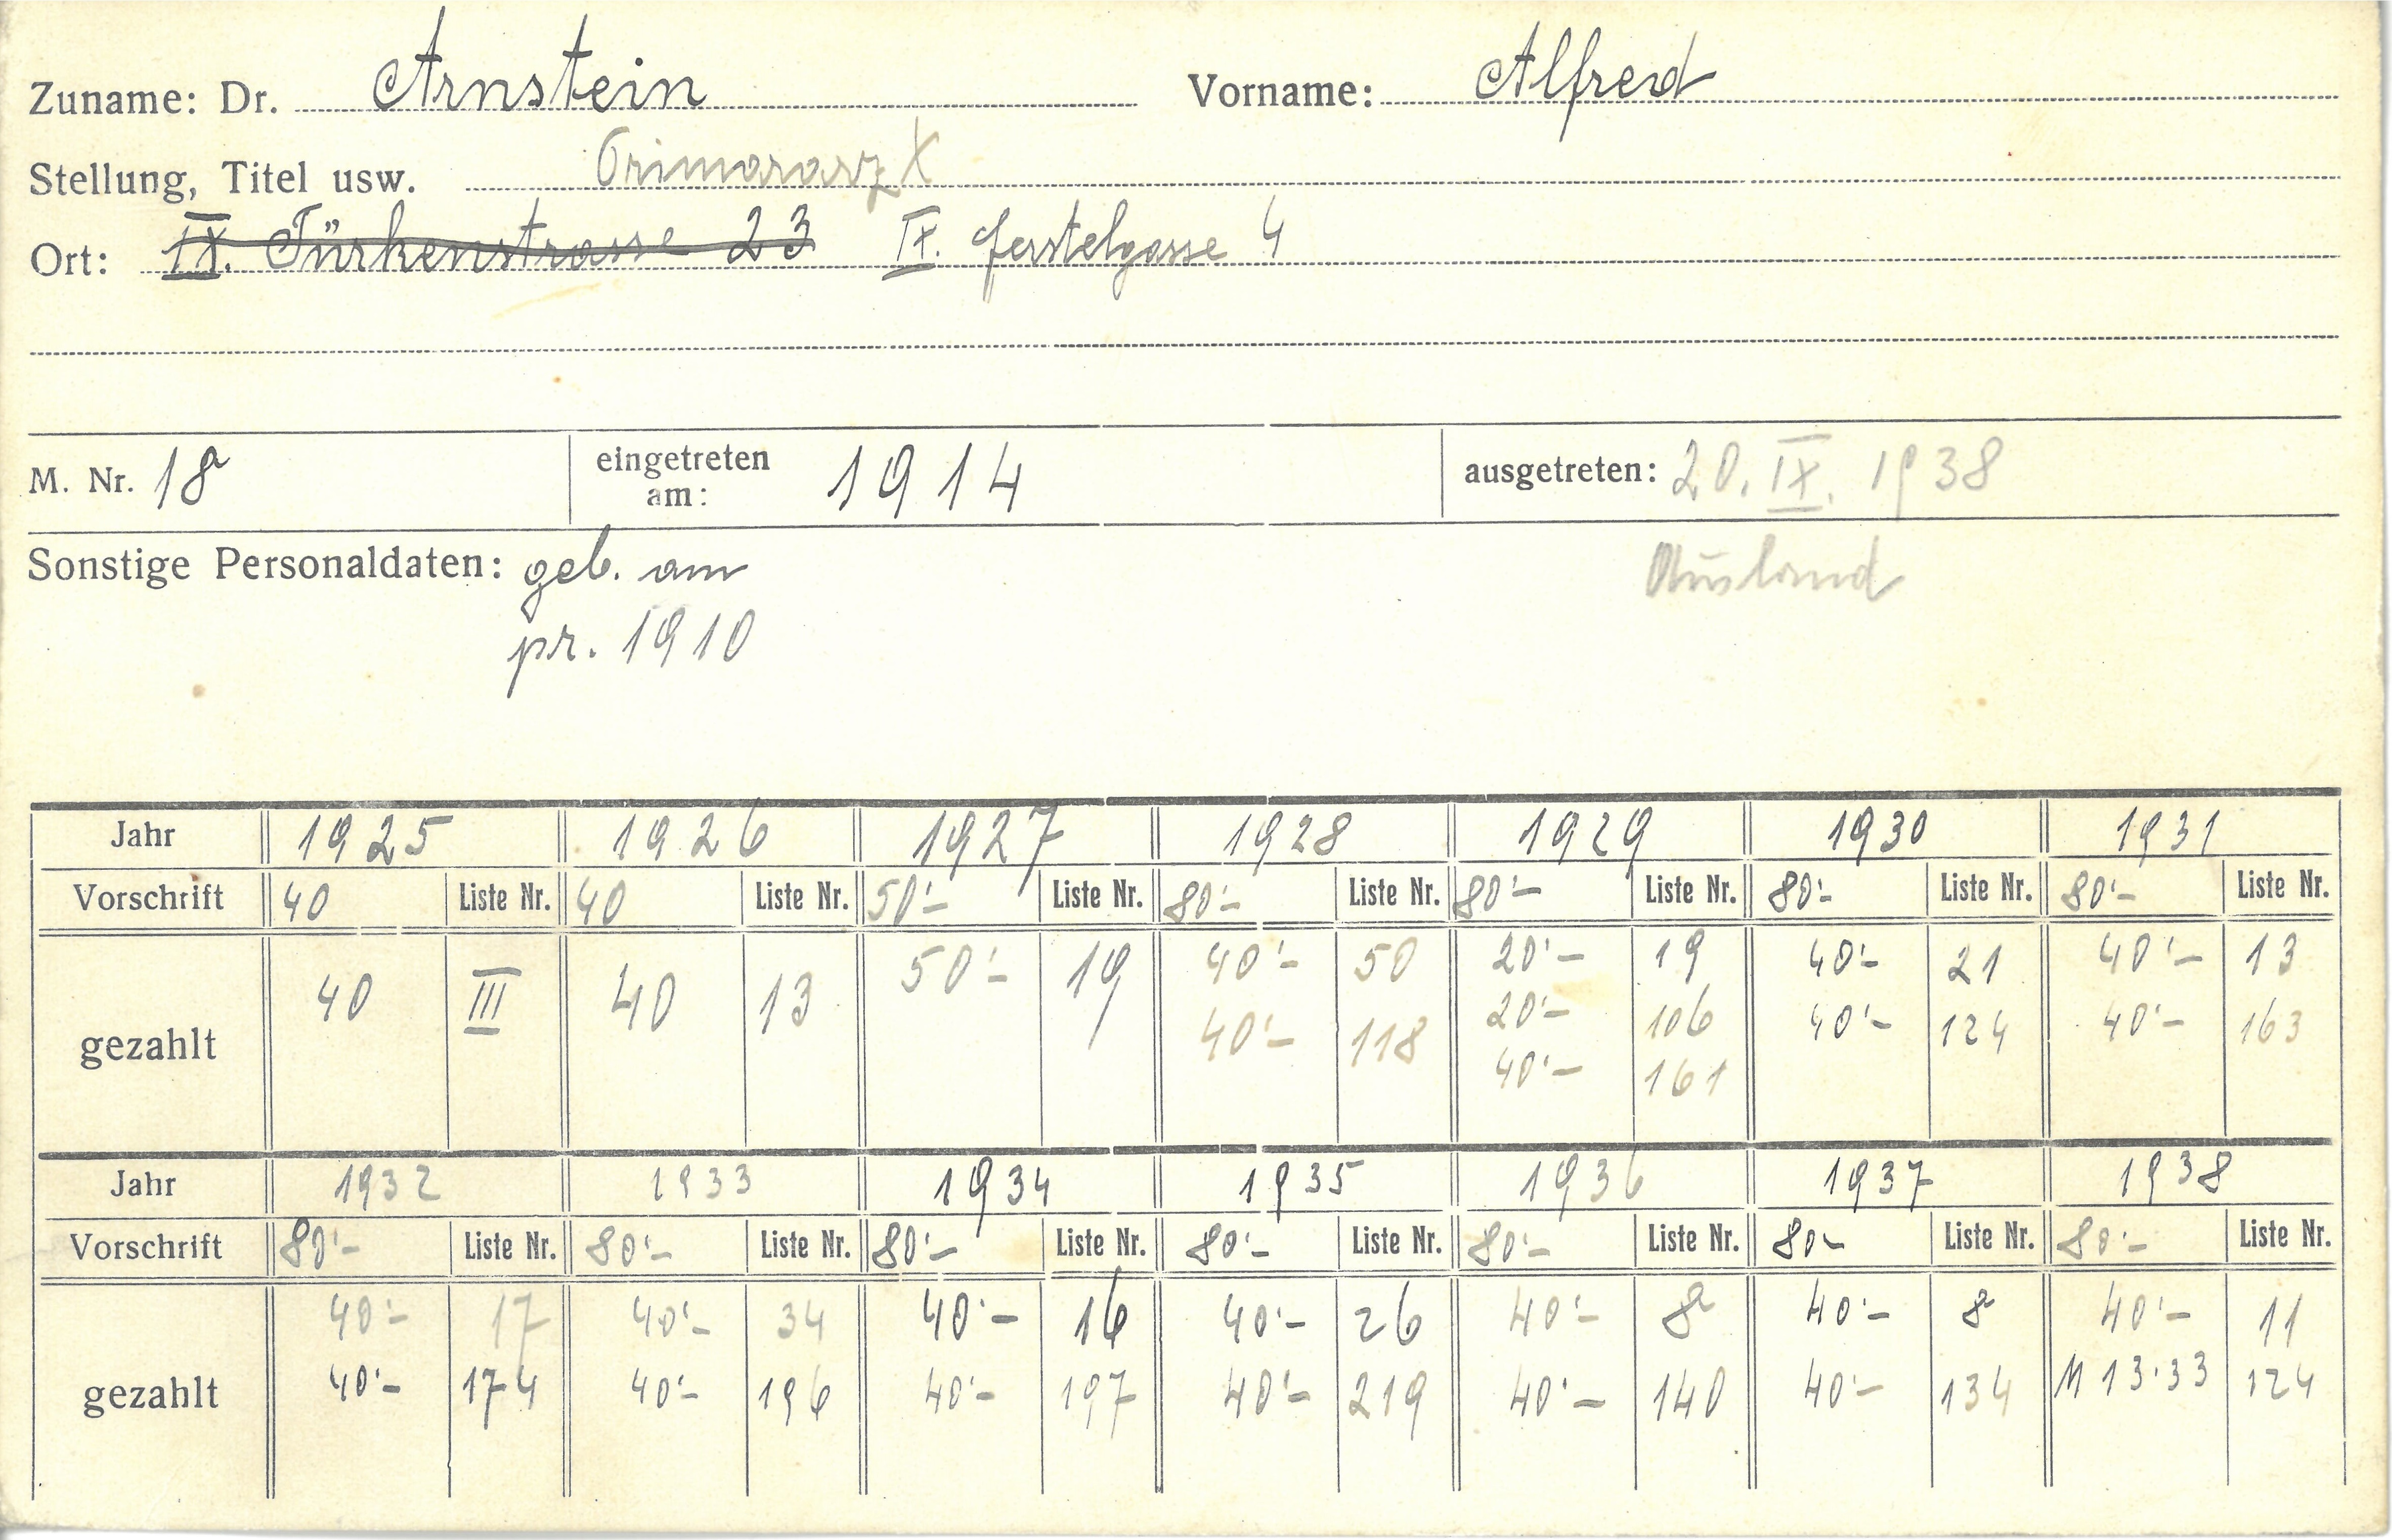 Zuname: Dr. Arnstein Vorname: Alfred
Stellung, Titel usw. Primararzt
Ort: IX. Türkenstrasse 23 IX. Ferstelgasse 4
M. Nr. 18 eingetreten am: 1914 ausgetreten: 20. IX. 1938
Sonstige Personaldaten: geb. am Ausland
pr. 1910
Jahr 1925 1926 1927 1928 1929 1930 1931
Vorschrift 40 Liste Nr. 40 Liste Nr. 50'- Liste Nr. 80'- Liste Nr. 80'- Liste Nr. 80'- Liste Nr. 80'- Liste Nr.
gezahlt 40 III 40 13 50'- 19 40'- 50 20'- 19 40'- 21 40'- 13
40'- 118 20'- 106 40'- 124 40'- 163
40'- 161
Jahr 1932 1933 1934 1935 1936 1937 1938
Vorschrift 80'- Liste Nr. 80'- Liste Nr. 80'- Liste Nr. 80'- Liste Nr. 80'- Liste Nr. 80'- Liste Nr. 80'- Liste Nr.
gezahlt 40'- 17 40'- 34 40'- 16 40'- 26 40'- 8 40'- 8 40'- 11
40'- 174 40'- 196 40'- 197 40'- 219 40'- 140 40'- 134 M 13'33 124